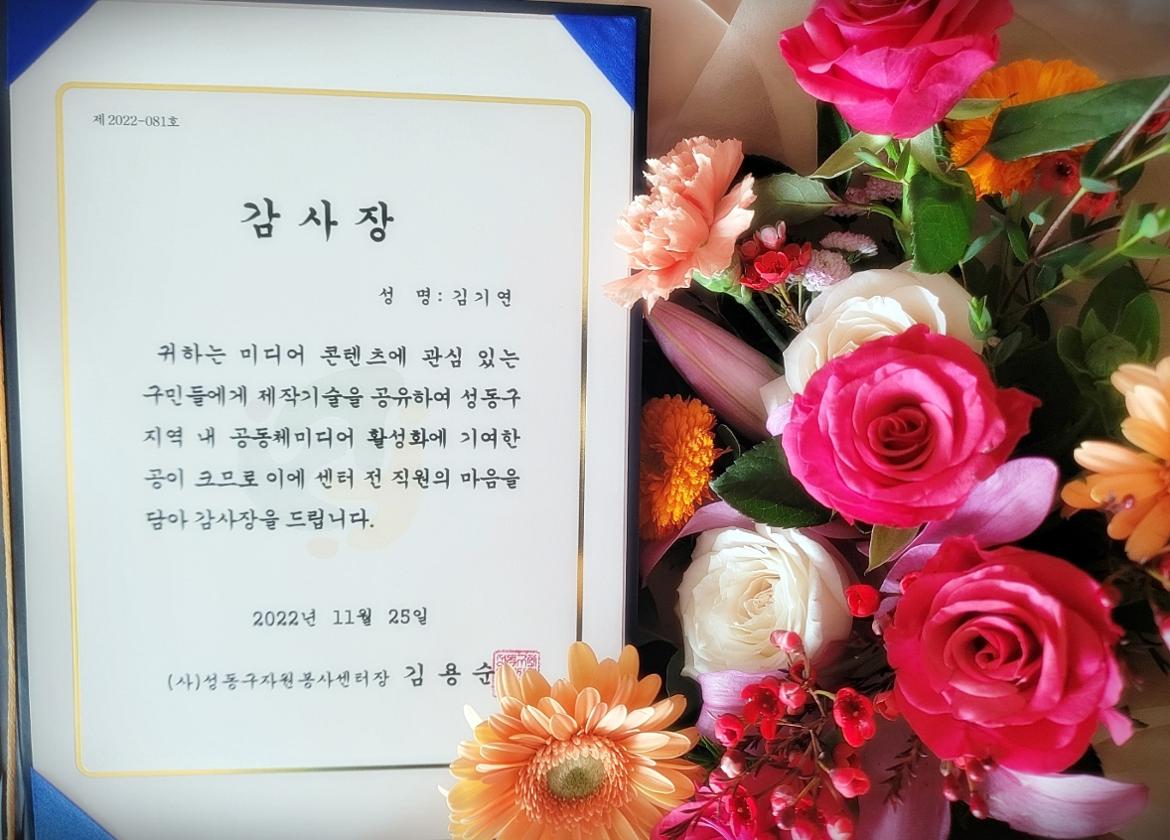 제 2022-081호
감 사 장
성 명 : 김 기 연
귀하는 미디어 콘텐츠에 관심 있는
구민들에게 제작기술을 공유하여 성동구
지역 내 공동체미디어 활성화에 기여한
공이 크므로 이에 센터 전 직원의 마음을
담아 감사장을 드립니다.
2022년 11월 25일
(사)성동구자원봉사센터장 김 용 순